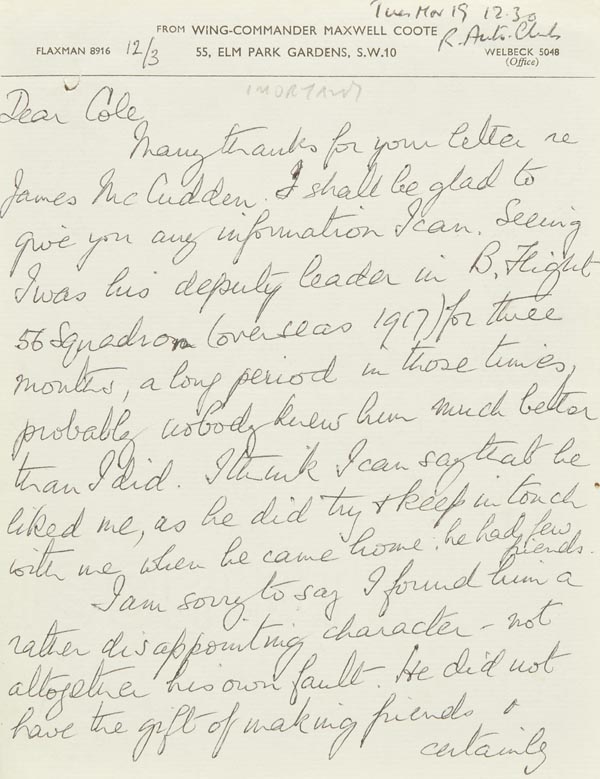 Tues Mar 19 12.30
R. Auto. Club
FROM WING-COMMANDER MAXWELL COOTE
FLAXMAN 8916
12/3
55, ELM PARK GARDENS, S.W.10
WELBECK 5048
(Office)
Dear Cole,
Many thanks for your letter re
James McCudden. I shall be glad to
give you any information I can. Seeing
I was his deputy leader in B. Flight
56 Squadron (overseas 1917) for three
months, a long period in those times,
probably nobody knew him much better
than I did. I think I can say that he
liked me, as he did try & keep in touch
with me when he came home: he had few
friends.
I am sorry to say I found him a
rather disappointing character - not
altogether his own fault. He did not
have the gift of making friends &
certainly